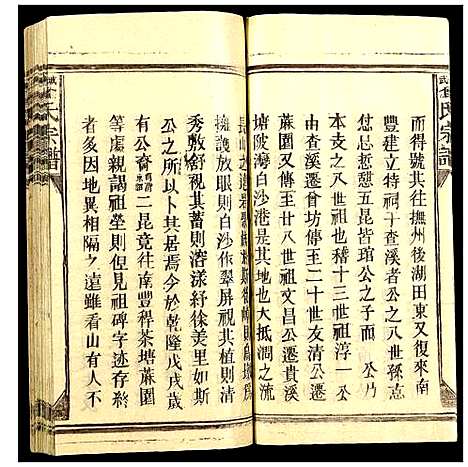 而得號共往撫州後湖田東又復來南
豐建立特祠于查溪者公之八世孫志
愆忌哲懇五昆皆琯公之子而 公乃
本支之八世祖也稽十三世祖淳一公
遷查溪遷曾坊傳至二十世友清公遷
蔴園又傳至廿八世祖文昌公遷貴溪
塘陂灣白沙港是大抵澗之流
長山之
擁護放眼則白沙作翠屏視共植則清
秀敷舒視其蓄則溶漾紆徐美里如斯
公之所以卜其居焉今於乾隆戊戌歲
有公裔 二昆竟往南豐稈茶塘蔴園
等處親謁祖塋則但見祖碑字迹剝落
者多因地異相隔之遠雖看山有人不
氏宗譜
氏宗譜